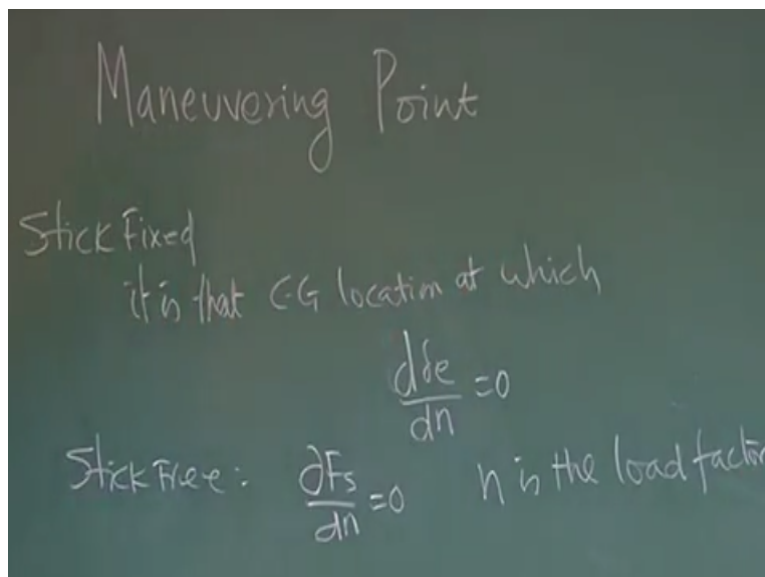 Maneuvering Point
Stick Fixed
it is that C-G location at which
dδe/dn =0
Stick Free: ∂Fs/∂n =0 n is the load factor